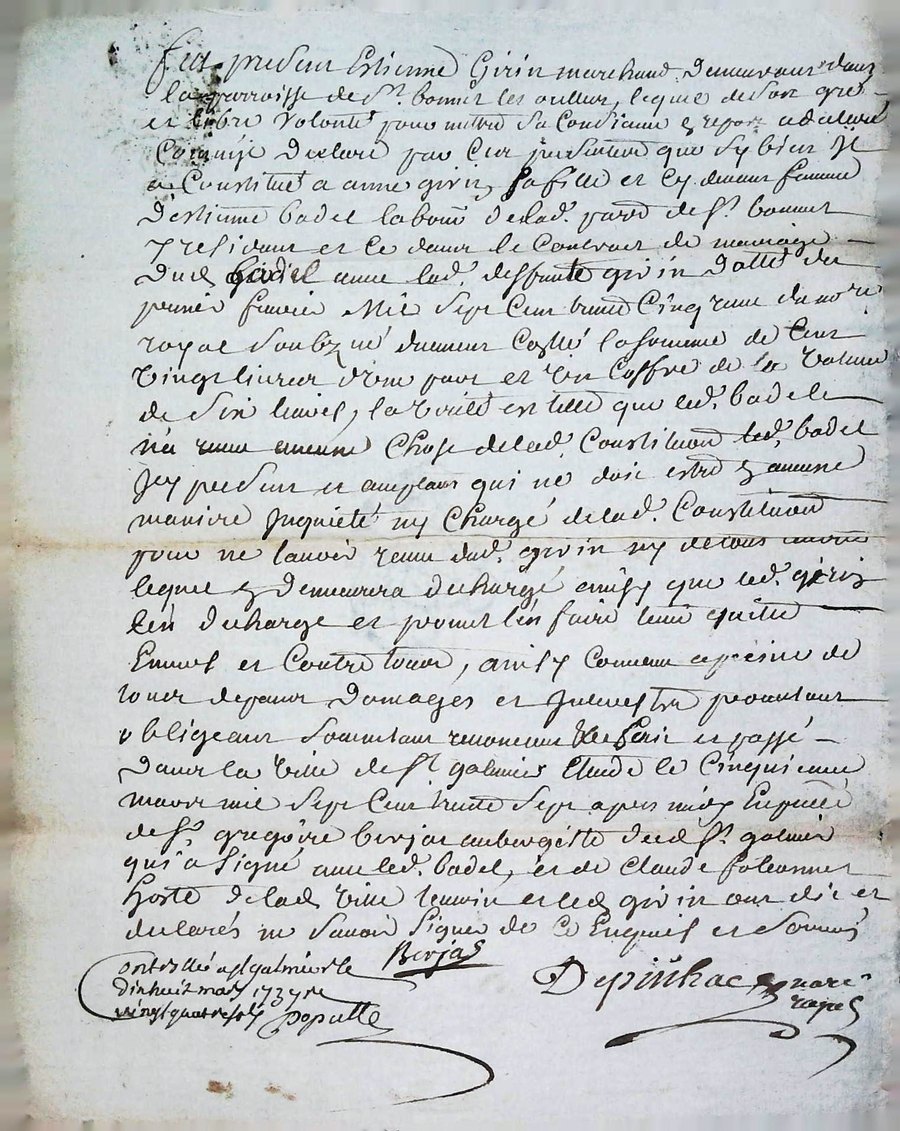 fut present Estienne Girin marchand demeurant dans
la parroisse de St. bonnet les oulles, lequel de son gré
et libre volonté pour mettre sa Consiance en repos a declaré
Comme declare par Ces presentes que sy bien Il
a Constitué a anne girin, sa fille et Cy devant femme
destienne badel labour. de lad. parr. de St. bonnet
y residant et ce dans le Contract de mariage
dud. badel avec lad. deffunte girin datté du
premier fevrier Mil sept Cent trente Cinq receu du nore.
royal soubzné dument Collé la somme de Cent
vingt livres d'une part et un Coffre de la valeur
de six livres, la verité est telle que led. badel
n'a receu aucune Chose de lad. Constitution led. badel
Icy present et acceptant qui ne doit estre en aucune
maniere Inquieté ny Chargé de lad. Constitution
pour ne l'avoir receu dud. girin ny de tous autres
lequel en demeurera decharge ainsy que led. girin
l'en decharge et promet l'en faire tenir quitte
Envers et Contre tous, ainsy Convenu a peine de
tous depans domages et Interestz promettant
obligeant soumettant renonceant fait et passé
dans la ville de St galmier le Cinquieme
mars mil sept Cent trente sept apres midy En pnce
de Sr. gregoire berjac aubergiste dud. St. galmier
qui a signé avec led. badel, et de Claude
hoste de lad. ville temoin et led. girin ont dit et
declarés ne savoir signer de Ce Enquis et sommés
Berjas
Controllé a St galmier le
dix huit mars 1737 re
vingt quatre sols Populle
Depinhac nore
royal